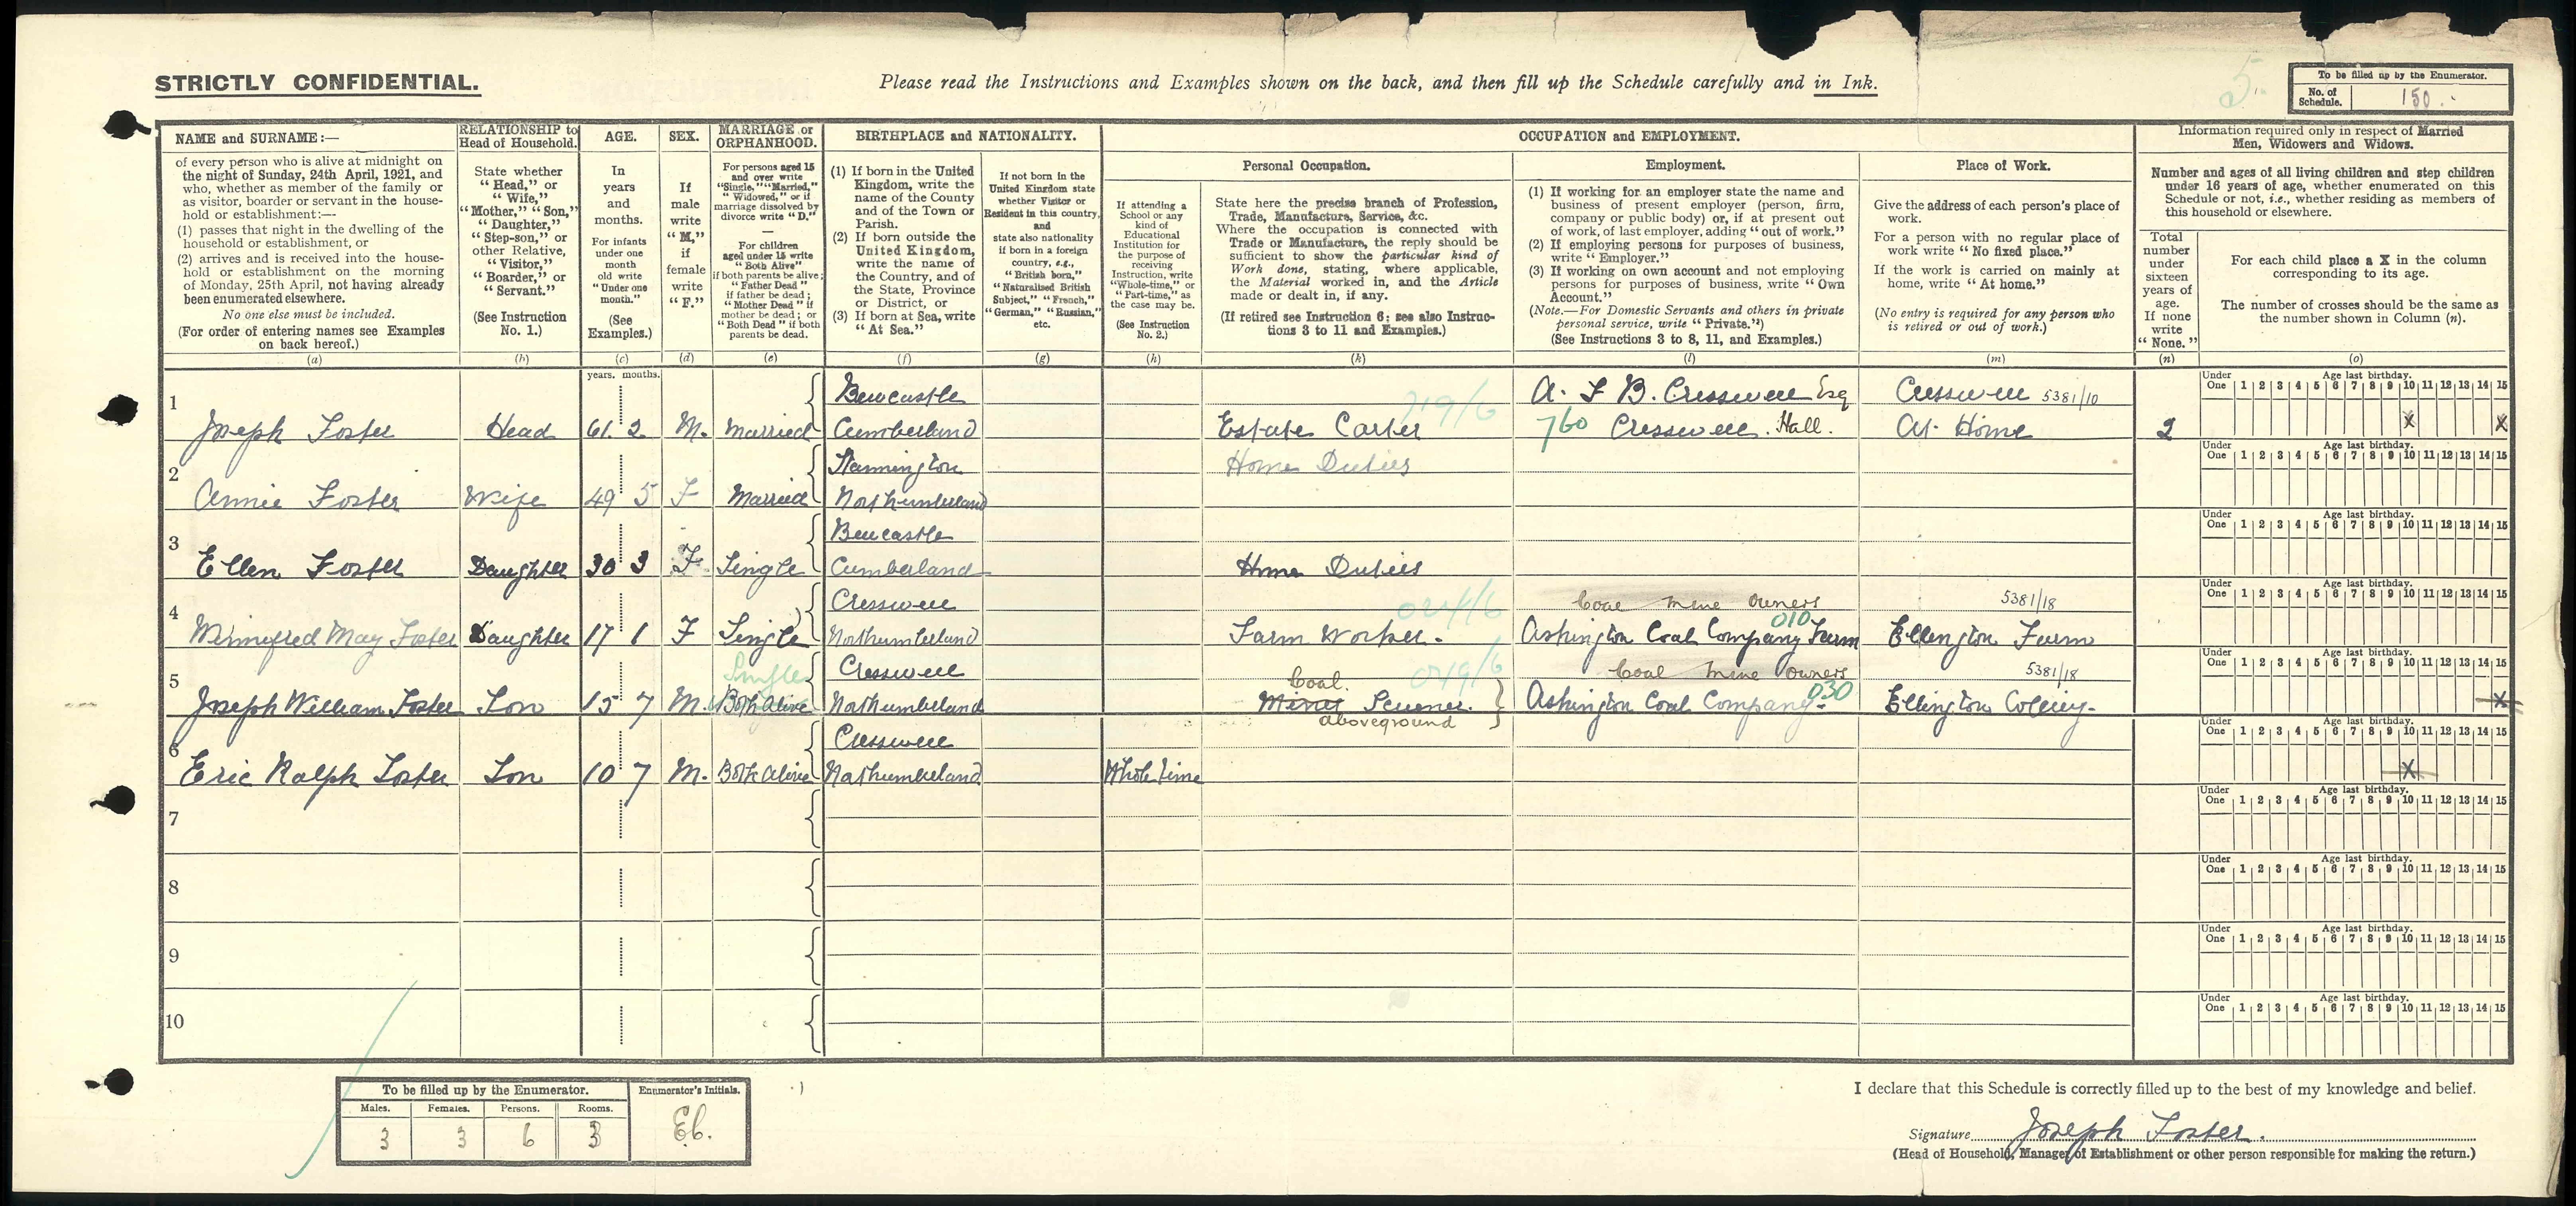 STRICTLY CONFIDENTIAL.
Please read the Instructions and Examples shown on the back, and then fill up the Schedule carefully and in Ink.
5.
To be filled up by the Enumerator.
No. of Schedule.
150
NAME and SURNAME:—
of every person who is alive at midnight on
the night of Sunday, 24th April, 1921, and
who, whether as member of the family or
as visitor, boarder or servant in the house-
hold or establishment:—
(1) passes that night in the dwelling of the
household or establishment, or
(2) arrives and is received into the house-
hold or establishment on the morning
of Monday, 25th April, not having already
been enumerated elsewhere.
No one else must be included.
(For order of entering names see Examples
on back hereof.)
(a)
RELATIONSHIP to
Head of Household.
State whether
"Head," or
"Wife,"
"Mother," "Son,"
"Daughter,"
"Step-son," or
other Relative,
"Visitor,"
"Boarder," or
"Servant."
(See Instruction
No. 1.)
(b)
AGE.
In
years
and
months.
For infants
under one
month
old write
"Under one
month."
(See
Examples.)
(c)
SEX.
If
male
write
"M,"
if
female
write
"F."
(d)
MARRIAGE or
ORPHANHOOD.
For persons aged 15
and over write
"Single," "Married,"
"Widowed," or if
marriage dissolved by
divorce write "D."
For children
aged under 15 write
"Both Alive"
if both parents be alive;
"Father Dead"
if father be dead;
"Mother Dead" if
mother be dead; or
"Both Dead" if both
parents be dead.
(e)
BIRTHPLACE and NATIONALITY.
(1) If born in the United
Kingdom, write the
name of the County
and of the Town or
Parish.
(2) If born outside the
United Kingdom,
write the name of
the Country, and of
the State, Province
or District, or
(3) If born at Sea, write
"At Sea."
(f)
If not born in the
United Kingdom state
whether Visitor or
Resident in this country,
and
state also nationality
if born in a foreign
country, e.g.,
"British born,"
"Naturalised British
Subject," "French,"
"German," "Russian,"
etc.
(g)
OCCUPATION and EMPLOYMENT.
If attending a
School or any
kind of
Educational
Institution for
the purpose of
receiving
Instruction, write
"Whole-time," or
"Part-time," as
the case may be.
(See Instruction
No. 2.)
(h)
Personal Occupation.
State here the precise branch of Profession,
Trade, Manufacture, Service, &c.
Where the occupation is connected with
Trade or Manufacture, the reply should be
sufficient to show the particular kind of
Work done, stating, where applicable,
the Material worked in, and the Article
made or dealt in, if any.
(If retired see Instruction 6; see also Instruc-
tions 3 to 11 and Examples.)
(k)
Employment.
(1) If working for an employer state the name and
business of present employer (person, firm,
company or public body) or, if at present out
of work, of last employer, adding "out of work."
(2) If employing persons for purposes of business,
write "Employer."
(3) If working on own account and not employing
persons for purposes of business, write "Own
Account."
(Note.—For Domestic Servants and others in private
personal service, write "Private.")
(See Instructions 3 to 8, 11, and Examples.)
(l)
Place of Work.
Give the address of each person's place of
work.
For a person with no regular place of
work write "No fixed place."
If the work is carried on mainly at
home, write "At home."
(No entry is required for any person who
is retired or out of work.)
(m)
Information required only in respect of Married
Men, Widowers and Widows.
Number and ages of all living children and step children
under 16 years of age, whether enumerated on this
Schedule or not, i.e., whether residing as members of
this household or elsewhere.
Total
number
under
sixteen
years of
age.
If none
write
"None."
(n)
For each child place a X in the column
corresponding to its age.
The number of crosses should be the same as
the number shown in Column (n).
(o)
years. months.
Under One
Age last birthday.
1 2 3 4 5 6 7 8 9 10 11 12 13 14 15
1
Bewcastle 719/6 A. F B. Cresswell Esq Cresswell 5381/10
Joseph Foster Head 61. 2. M. Married Cumberland Estate Carter 760 Cresswell. Hall. At Home 2 X X
Under One
Age last birthday.
1 2 3 4 5 6 7 8 9 10 11 12 13 14 15
2
Stannington Home Duties
Annie Foster Wife 49 5 F Married Northumberland
Under One
Age last birthday.
1 2 3 4 5 6 7 8 9 10 11 12 13 14 15
3
Bewcastle
Ellen Foster Daughter 30 3 F Single Cumberland Home Duties
Under One
Age last birthday.
1 2 3 4 5 6 7 8 9 10 11 12 13 14 15
4
Cresswell Coal mine owners 5381/18
Winnifred May Foster Daughter 17 1 F Single Northumberland Farm Worker. Ashington Coal Company Farm 010 Ellington Farm
Under One
Age last birthday.
1 2 3 4 5 6 7 8 9 10 11 12 13 14 15
5
Single Cresswell Coal. 049/6 Coal mine owners 5381/18
Joseph William Foster Son 15 7 M. Both Alive Northumberland Miner Screener. Ashington Coal Company. 030 Ellington Colliery. X
aboveground
Under One
Age last birthday.
1 2 3 4 5 6 7 8 9 10 11 12 13 14 15
6
Cresswell
Eric Ralph Foster Son 10 7 M. Both Alive Northumberland Whole time X
Under One
Age last birthday.
1 2 3 4 5 6 7 8 9 10 11 12 13 14 15
7
Under One
Age last birthday.
1 2 3 4 5 6 7 8 9 10 11 12 13 14 15
8
Under One
Age last birthday.
1 2 3 4 5 6 7 8 9 10 11 12 13 14 15
9
Under One
Age last birthday.
1 2 3 4 5 6 7 8 9 10 11 12 13 14 15
10
Under One
Age last birthday.
1 2 3 4 5 6 7 8 9 10 11 12 13 14 15
To be filled up by the Enumerator.
Males. Females. Persons. Rooms.
3 3 6 3
Enumerator's Initials.
E.C.
I declare that this Schedule is correctly filled up to the best of my knowledge and belief.
Signature Joseph Foster.
(Head of Household, Manager of Establishment or other person responsible for making the return.)